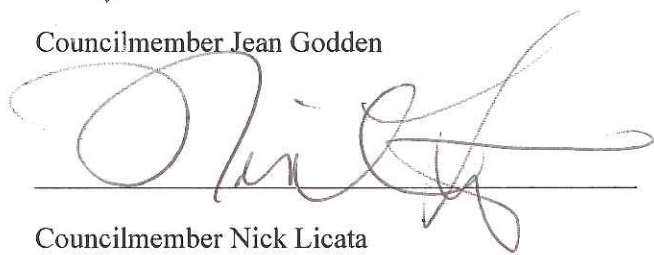 Councilmember Jean Godden
Councilmember Nick Licata